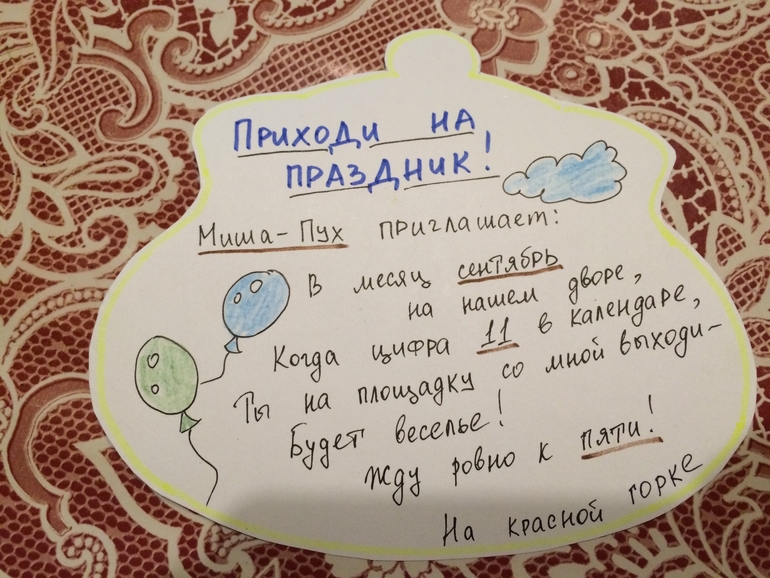 ПРИХОДИ НА
ПРАЗДНИК!
Миша-Пух приглашает:
В месяц сентябрь
на нашем дворе,
Когда цифра 11 в календаре,
Ты на площадку со мной выходи-
Будет веселье!
Жду ровно к пяти!
На красной горке